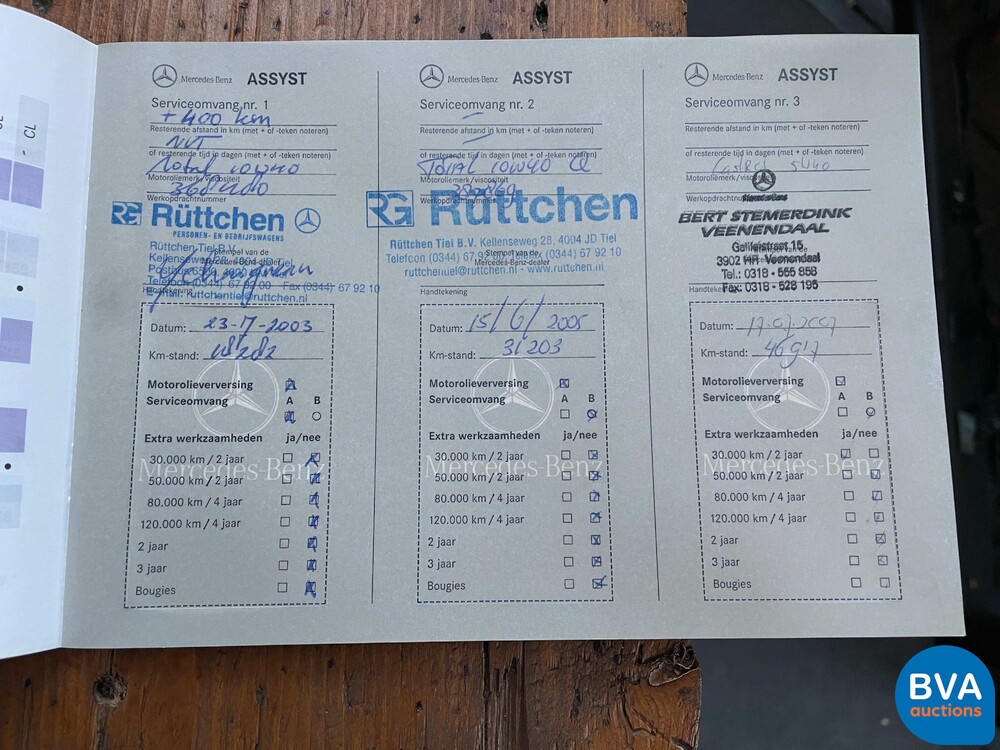 CL
Mercedes-Benz ASSYST
Serviceomvang nr. 1
+ 400 km
Resterende afstand in km (met + of -teken noteren)
NVT
of resterende tijd in dagen (met + of -teken noteren)
Total 10W40
Motoroliemerk/viscositeit
Werkopdrachtnummer
RG Rüttchen
PERSONEN- EN BEDRIJFSWAGENS
Rüttchen Tiel B.V.
Stempel van de
Mercedes-Benz-dealer
Fax (0344) 67 92 10
E-mail: ruttchentiel@ruttchen.nl
Handtekening
Datum: 23-7-2003
Km-stand: 18282
Motorolieverversing
Serviceomvang A B
Extra werkzaamheden ja/nee
30.000 km / 2 jaar
50.000 km / 2 jaar
80.000 km / 4 jaar
120.000 km / 4 jaar
2 jaar
3 jaar
Bougies
Mercedes-Benz
Mercedes-Benz ASSYST
Serviceomvang nr. 2
Resterende afstand in km (met + of -teken noteren)
of resterende tijd in dagen (met + of -teken noteren)
TOTAL 10W40
Motoroliemerk/viscositeit
Werkopdrachtnummer
RG Rüttchen
Rüttchen Tiel B.V. Kellenseweg 28, 4004 JD Tiel
Stempel van de
Mercedes-Benz-dealer
ruttchentiel@ruttchen.nl - www.ruttchen.nl
Handtekening
Datum: 15/6/2005
Km-stand: 31203
Motorolieverversing
Serviceomvang A B
Extra werkzaamheden ja/nee
30.000 km / 2 jaar
50.000 km / 2 jaar
80.000 km / 4 jaar
120.000 km / 4 jaar
2 jaar
3 jaar
Bougies
Mercedes-Benz
Mercedes-Benz ASSYST
Serviceomvang nr. 3
Resterende afstand in km (met + of -teken noteren)
of resterende tijd in dagen (met + of -teken noteren)
Castrol 5W40
Motoroliemerk/viscositeit
Mercedes-Benz
Werkopdrachtnummer
BERT STEMERDINK
VEENENDAAL
Galileistraat 15
3902 HR Veenendaal
Tel.: 0318 - 555 858
Fax: 0318 - 528 195
Datum: 17-07-2007
Km-stand: 46917
Motorolieverversing
Serviceomvang A B
Extra werkzaamheden ja/nee
30.000 km / 2 jaar
50.000 km / 2 jaar
80.000 km / 4 jaar
120.000 km / 4 jaar
2 jaar
3 jaar
Bougies
Mercedes-Benz
BVA
auctions